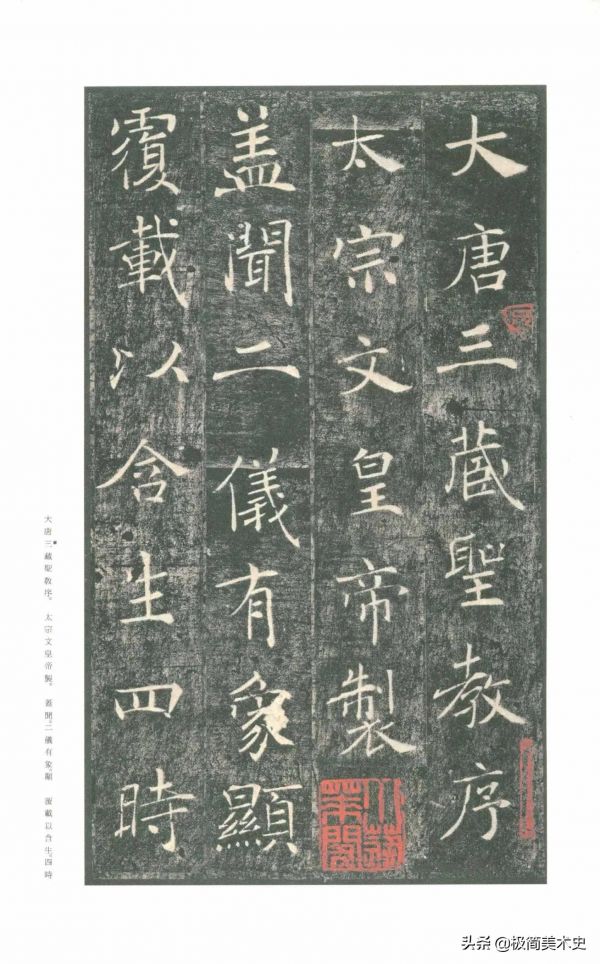 大唐三藏聖教序
太宗文皇帝製
小蓬萊閣
盖聞二儀有象顯
覆載以含生四時
大唐三藏聖教序。 太宗文皇帝製。 蓋聞。二儀有象。顯 覆載以含生。四時
头条 @极简美术史